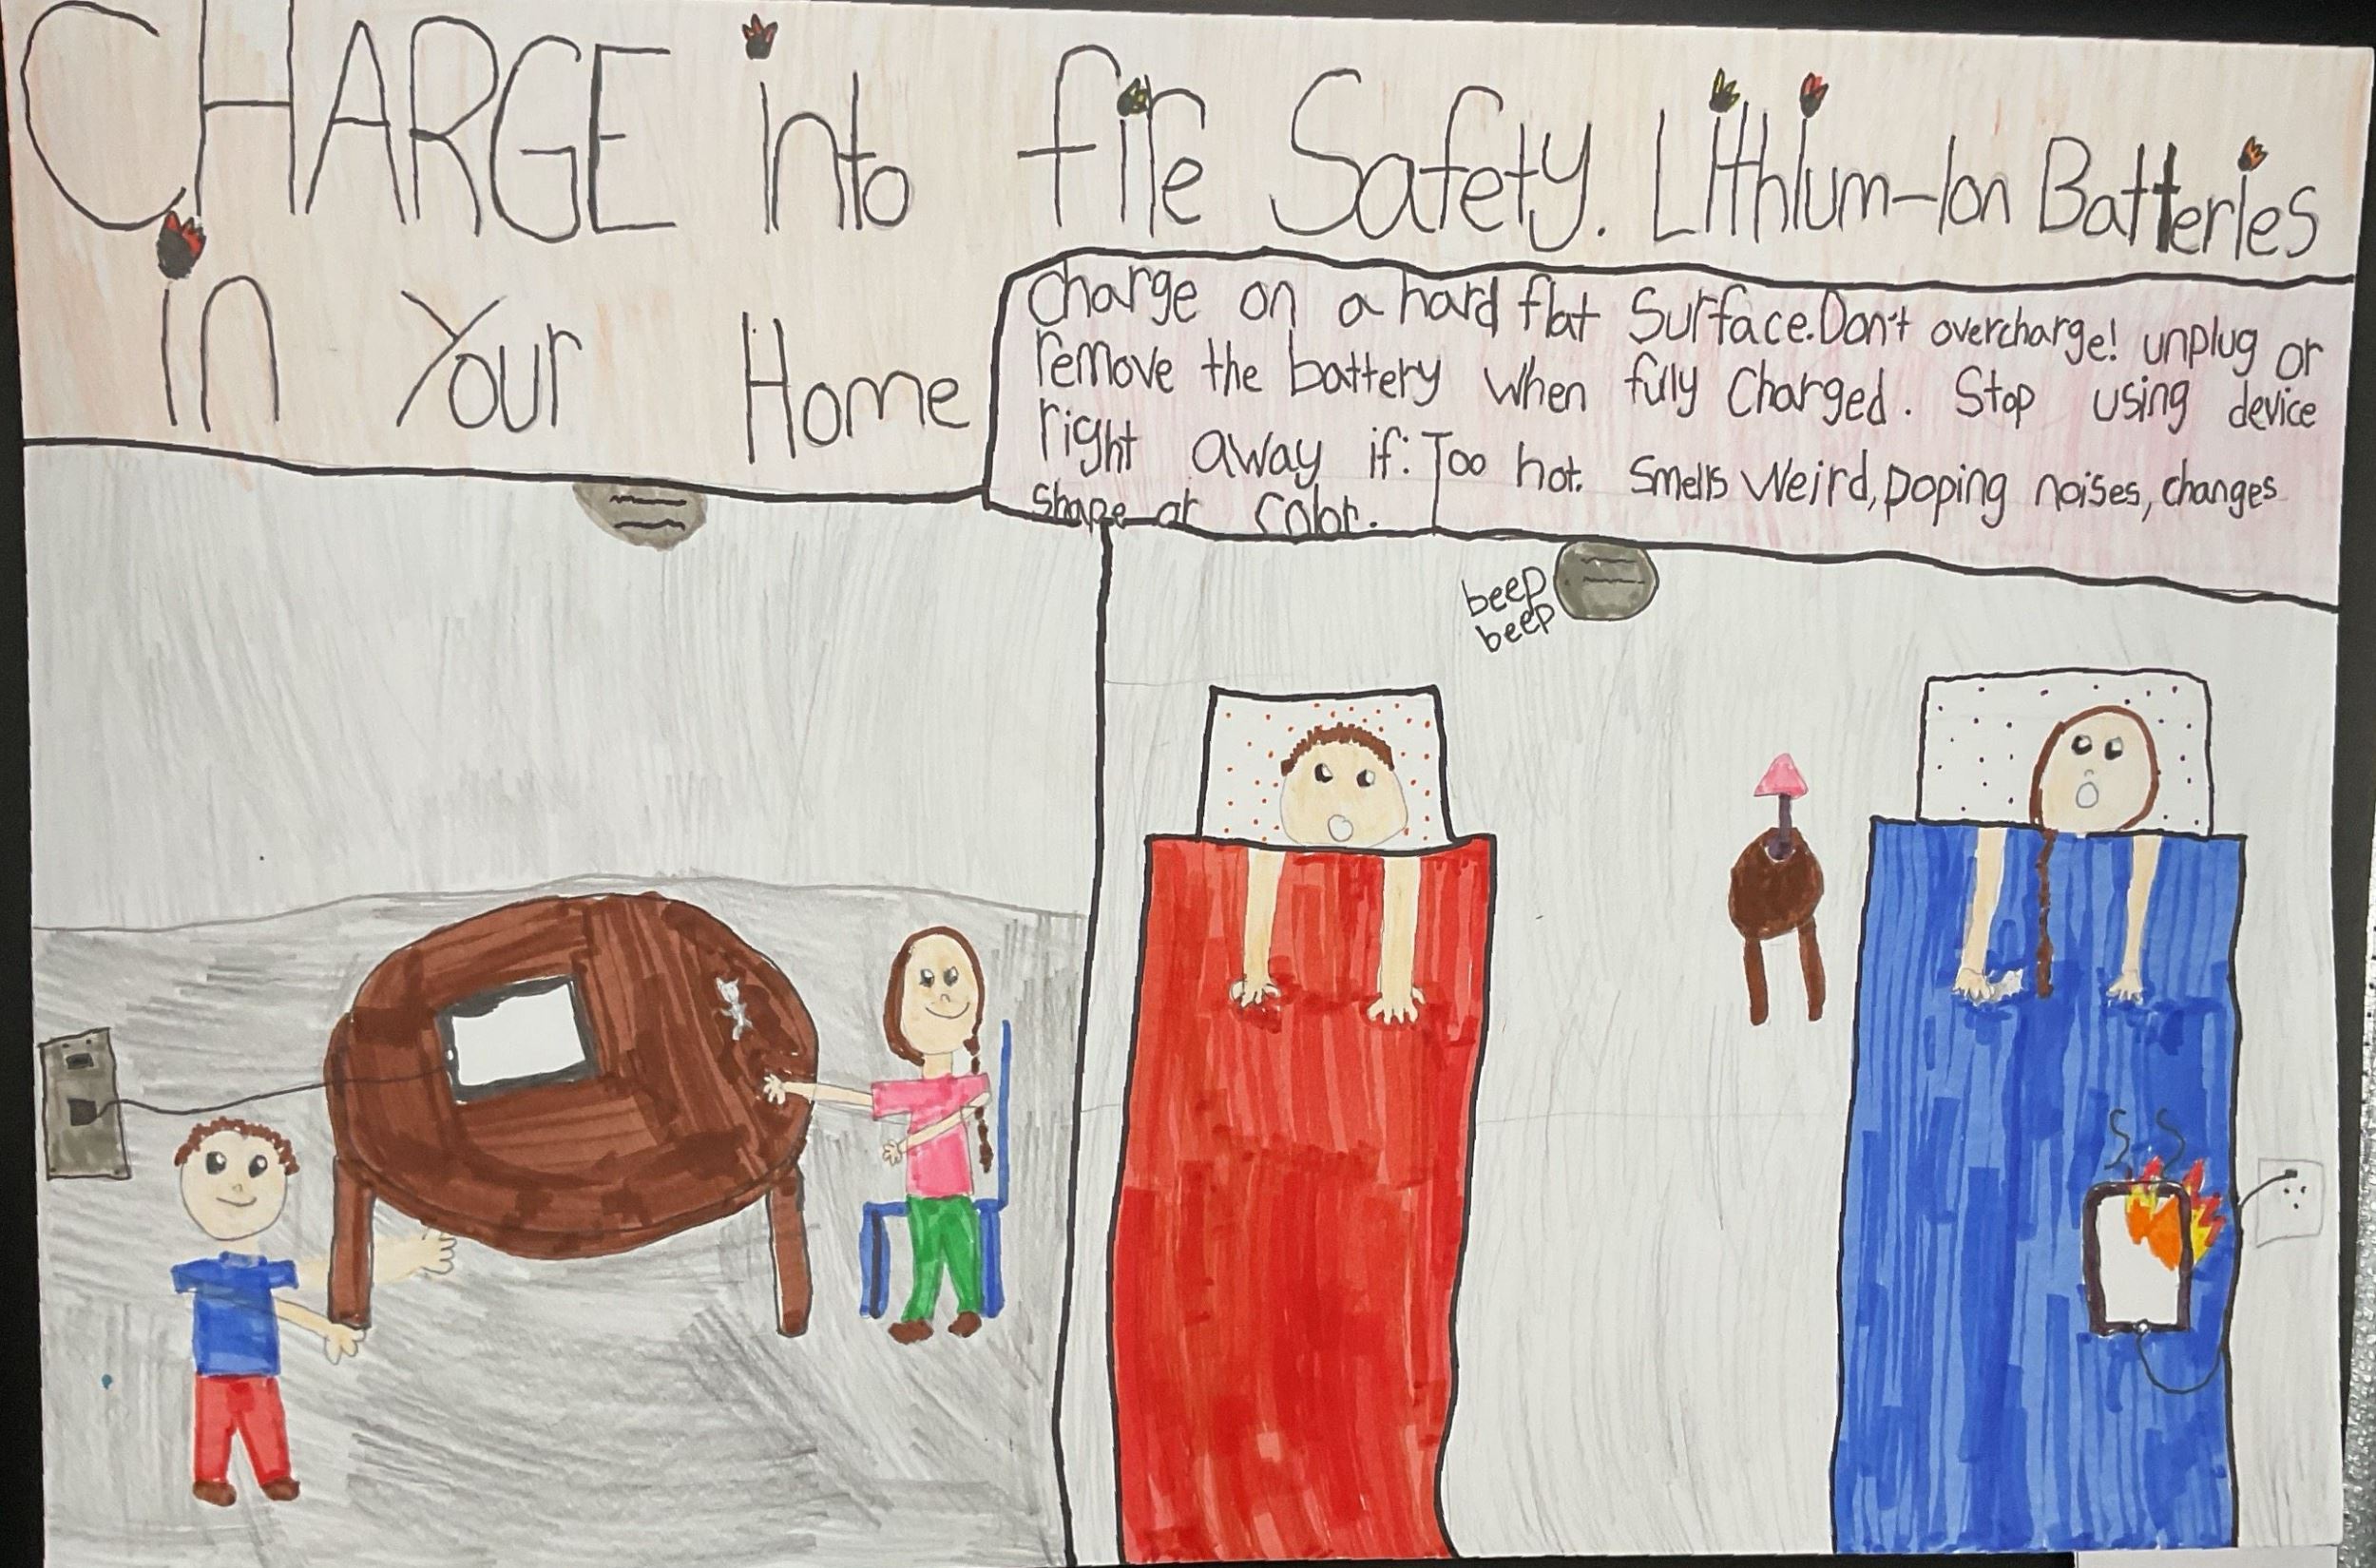 CHARGE into fire Safety. Lithium-Ion Batteries
in Your Home
Charge on a hard flat Surface. Don't overcharge! unplug or
remove the battery when fully Charged. Stop using device
right away if: Too hot. Smells Weird, poping noises, changes
shape or color.
beep
beep